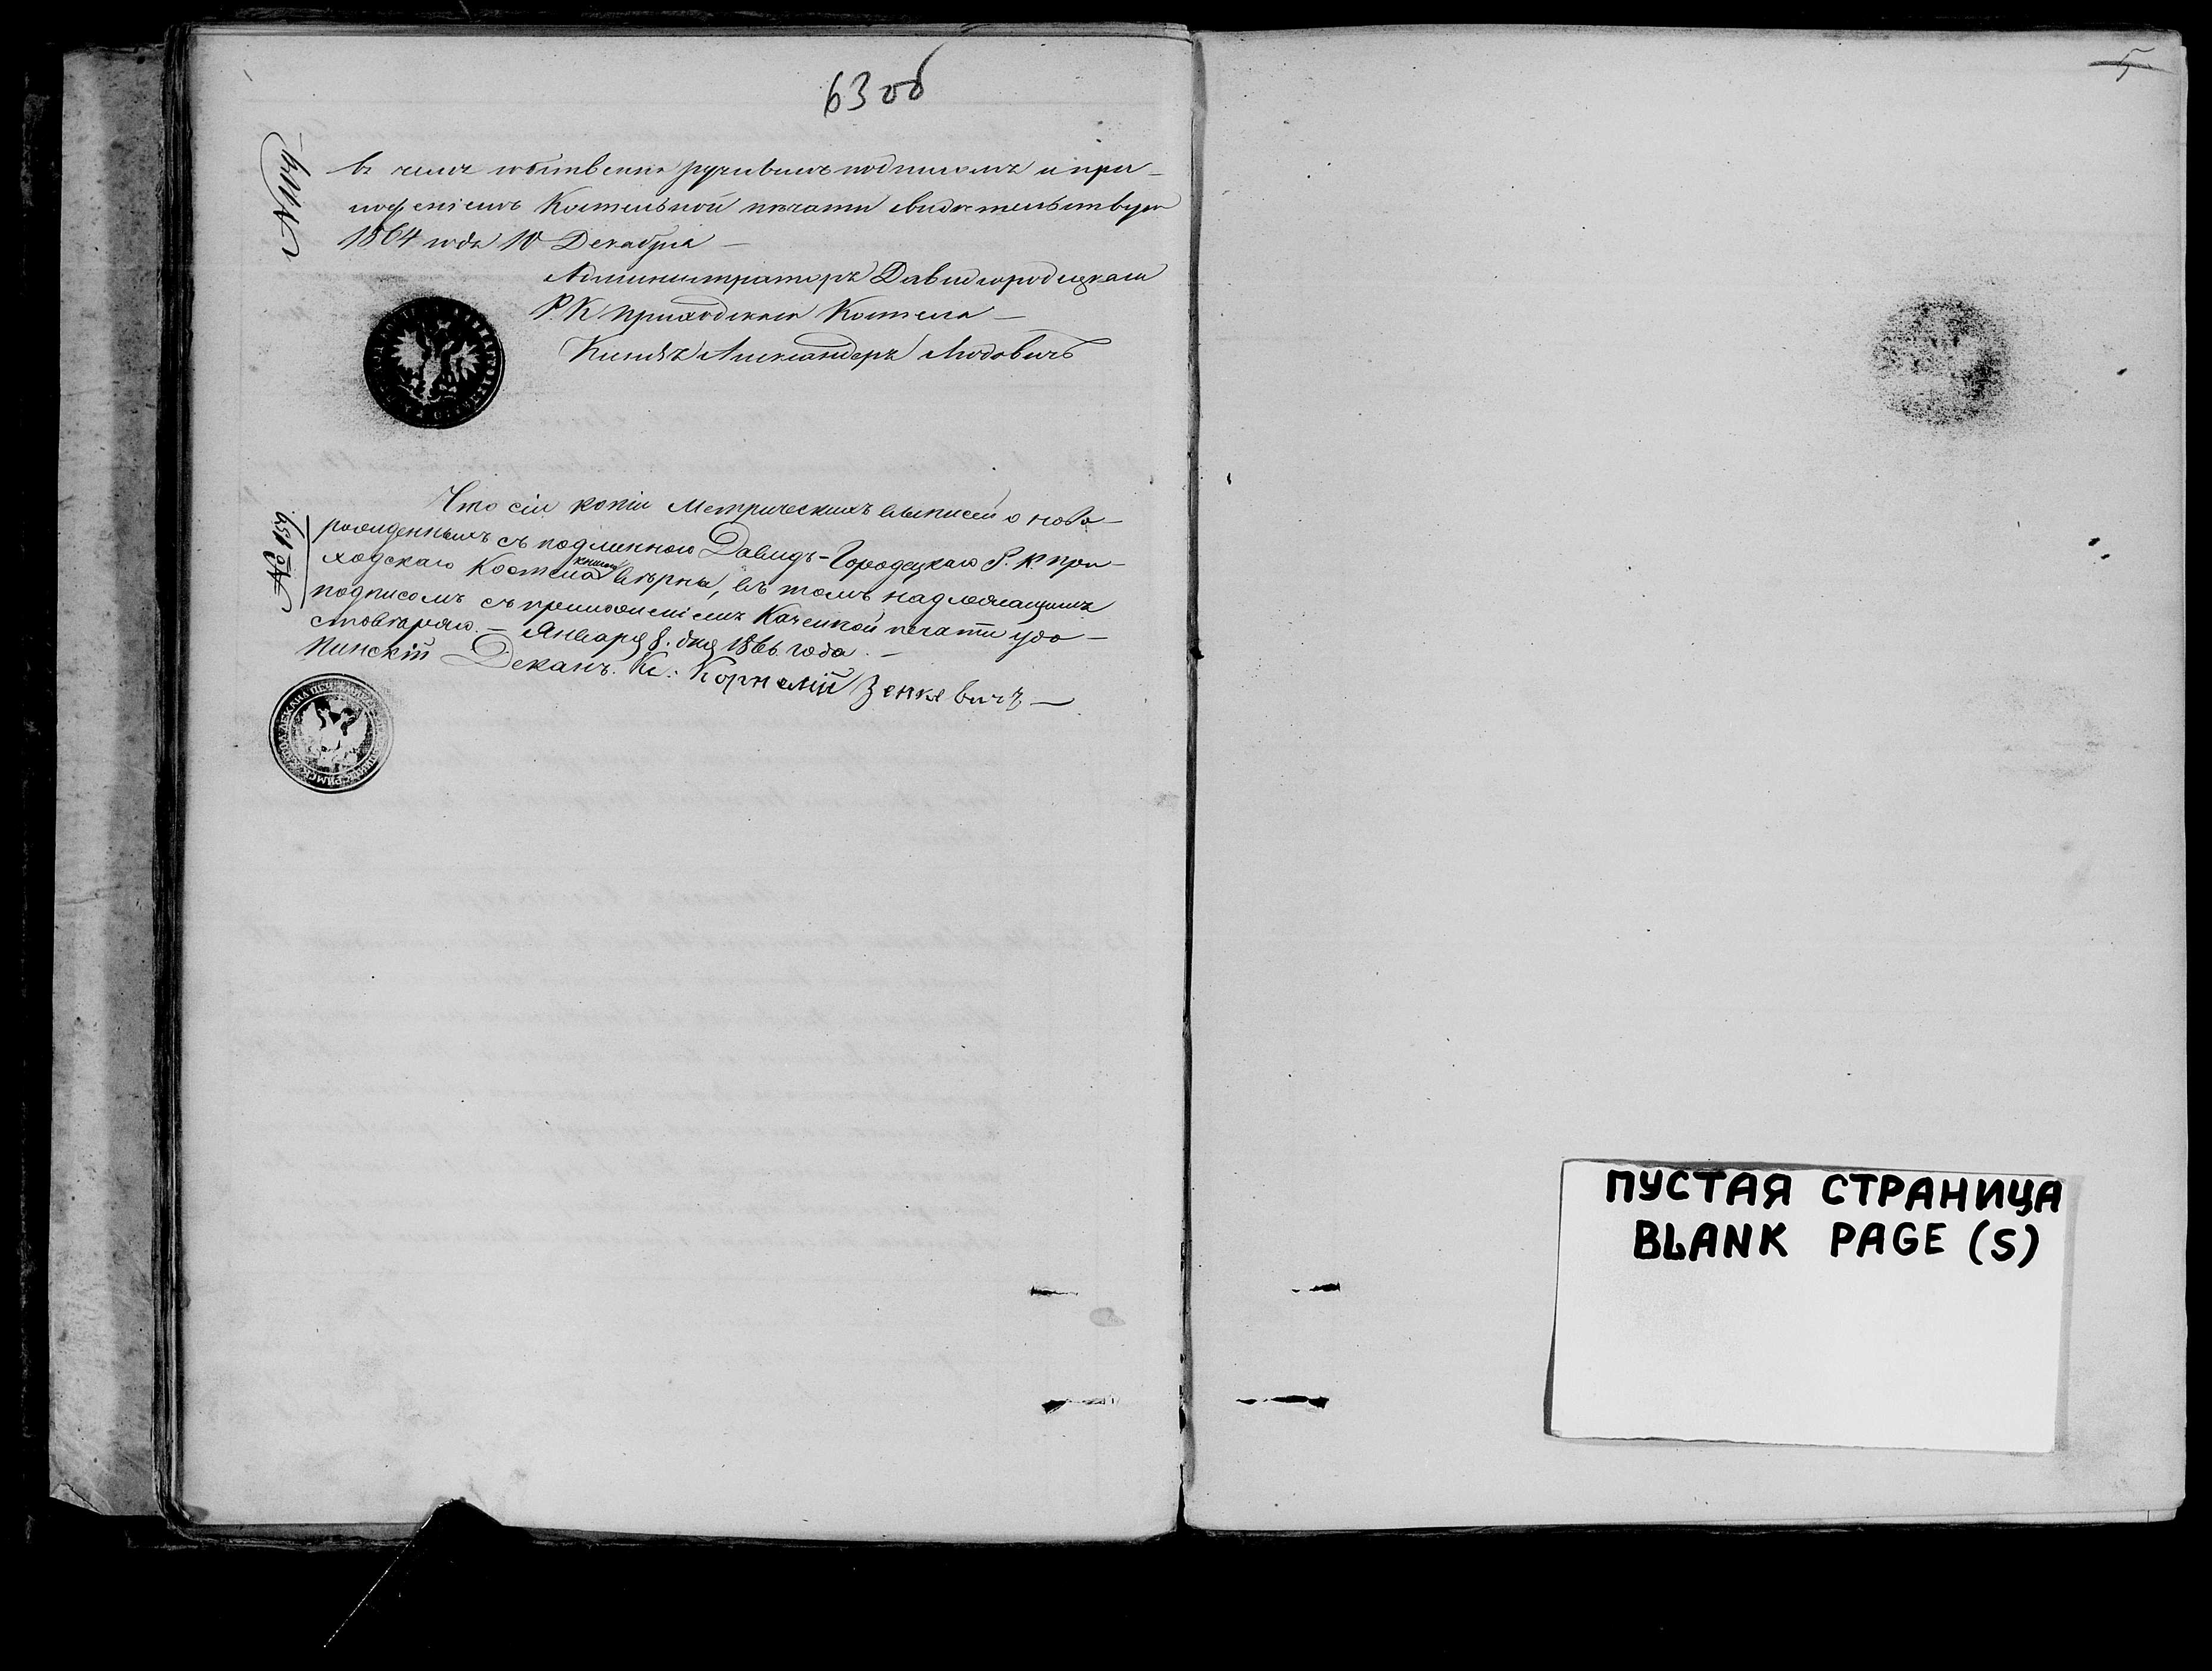 63 об
5
въ чемъ собственно ручнымъ подписомъ и при-
ложеніемъ Костельной печати свидѣтельствую
1864 года 10 Декабря —
Администраторъ Давидгородецкаго
Р. К приходскаго Костела —
Ксіндзъ Александеръ
Что сіи копіи Метрическихъ выписей о ново-
рожденныхъ съ подлинною Давидъ-Городецкаго Р. К. при-
ходскаго Костела книгою вѣрны, въ томъ надлежащимъ
подписомъ съ приложеніемъ печати удо-
стовѣряю. — Января 8. дня 1866 года. —
Пинскій Деканъ. Кс: Корнелій Зенкевичъ —
ПУСТАЯ СТРАНИЦА
BLANK PAGE (S)